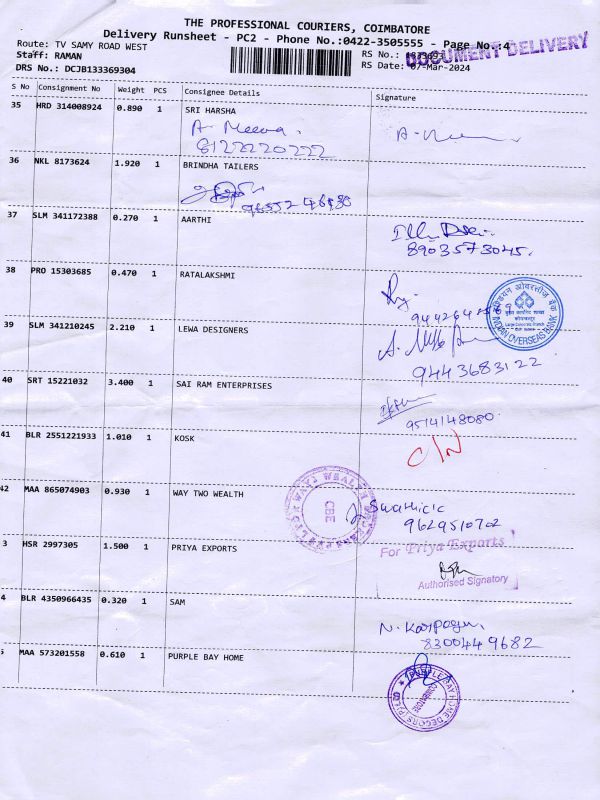 THE PROFESSIONAL COURIERS, COIMBATORE
Delivery Runsheet - PC2 - Phone No.:0422-3505555 - Page No.:4
Route: TV SAMY ROAD WEST
RS No.:
DOCUMENT DELIVERY
Staff: RAMAN
RS Date: 07-Mar-2024
DRS No.: DCJB133369304
S No Consignment No Weight PCS Consignee Details Signature
35 HRD 314008924 0.890 1 SRI HARSHA
A. Meena.
8122220222
36 NKL 8173624 1.920 1 BRINDHA TAILERS
37 SLM 341172388 0.270 1 AARTHI
8903573045.
38 PRO 15303685 0.470 1 RATALAKSHMI
इंडियन ओवरसीज़ बैंक
INDIAN OVERSEAS BANK
39 SLM 341210245 2.210 1 LEWA DESIGNERS
9443683122
40 SRT 15221032 3.400 1 SAI RAM ENTERPRISES
9514148080.
41 BLR 2551221933 1.010 1 KOSK
C/N
42 MAA 865074903 0.930 1 WAY TWO WEALTH
CBE
9629510702
3 HSR 2997305 1.500 1 PRIYA EXPORTS
For Priya Exports
Authorised Signatory
4 BLR 4350966435 0.320 1 SAM
8300449682
5 MAA 573201558 0.610 1 PURPLE BAY HOME